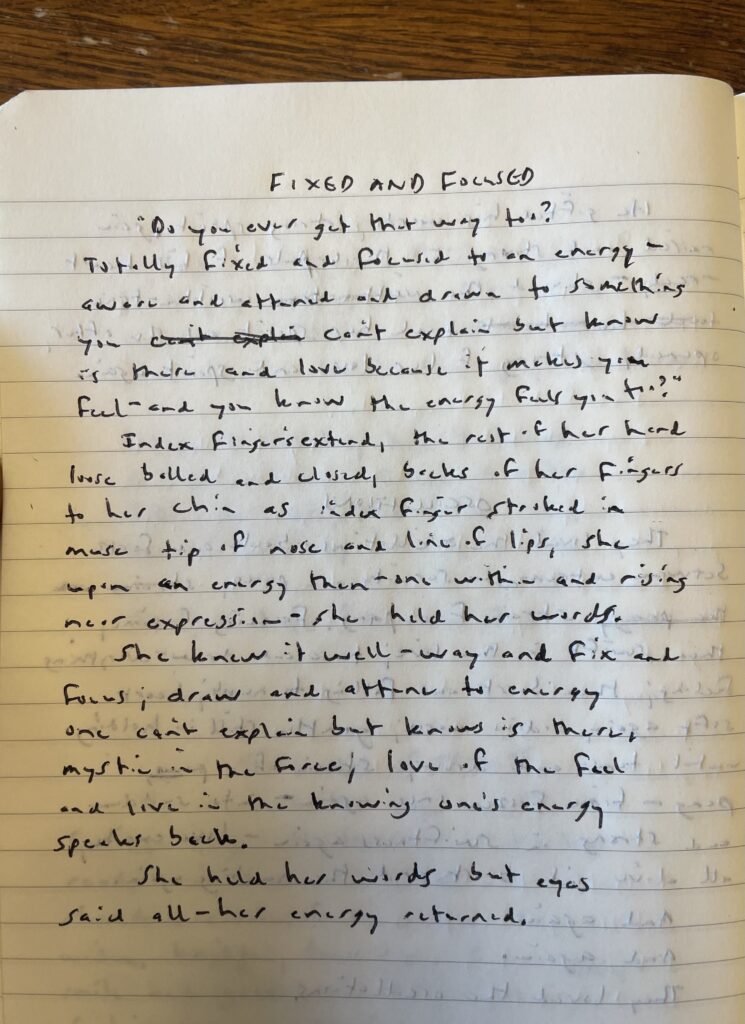 FIXED AND FOCUSED
"Do you ever get that way too?
Totally fixed and focused to an energy –
aware and attuned and drawn to something
you can't explain can't explain but know
is there and love because it makes you
feel – and you know the energy feels you too?"
Index fingers extend, the rest of her hand
loose balled and closed, backs of her fingers
to her chin as index finger stroked in
muse tip of nose and line of lips, she
upon an energy then – one within and rising
near expression – she held her words.
She knew it well – way and fix and
focus; draw and attune to energy
one can't explain but knows is there,
mystic in the force; love of the feel
and live in the knowing one's energy
speaks back.
She held her words but eyes
said all – her energy returned.